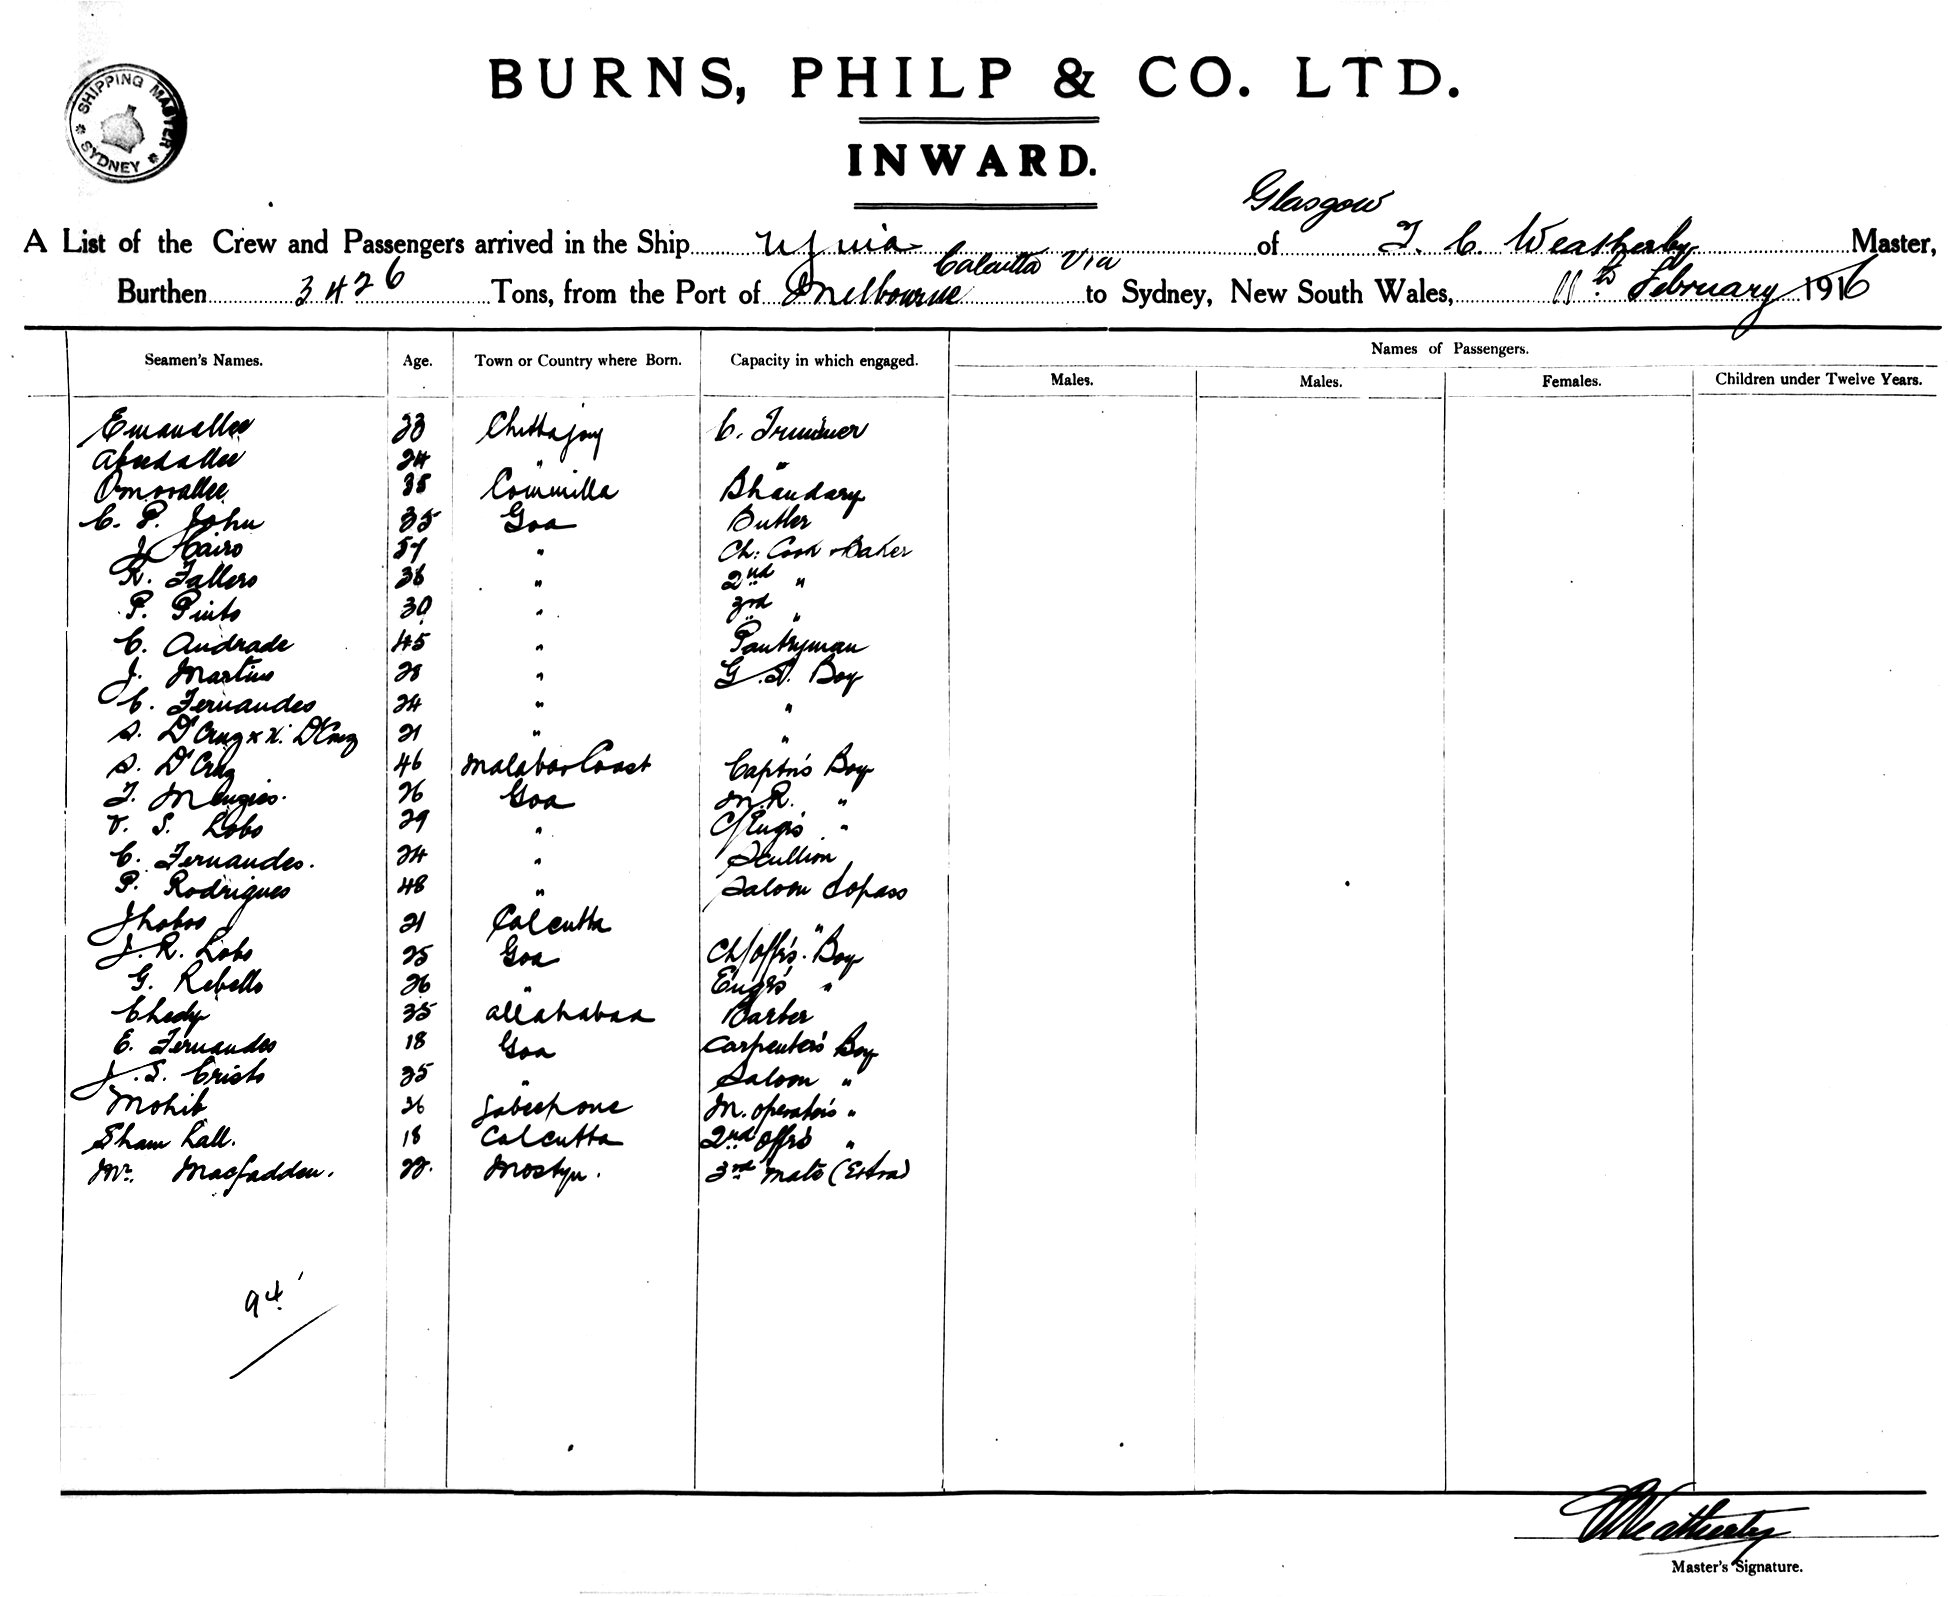 SHIPPING MASTER
* SYDNEY *
BURNS, PHILP & CO. LTD.
INWARD.
Glasgow
A List of the Crew and Passengers arrived in the Ship Ujina of T. C. Weatherby Master,
Calcutta Via
Burthen 3426 Tons, from the Port of Melbourne to Sydney, New South Wales, 11th February 1916
Names of Passengers.
Seamen's Names. Age. Town or Country where Born. Capacity in which engaged.
Males. Males. Females. Children under Twelve Years.
Emanallee 23 Chittagong C. Trimmer
Abedallee 24 " "
Omorallee 35 Commilla Bhandary
C. P. John 35 Goa Butler
J. Cairo 57 " Ch: Cook & Baker
R. Fallero 36 " 2nd "
P. Pinto 30 " 3rd "
C. Andrade 45 " Pantryman
J. Martins 28 " G. S. Boy
C. Fernandes 24 " "
S. D'Cruz x X. D'Cruz 21 " "
S. D'Cruz 46 Malabar Coast Captn's Boy
T. Menzies. 26 Goa M.R. "
V. S. Lobo 29 " C/Engr's "
C. Fernandes. 24 " Scullion
P. Rodrigues 48 " Saloon Topass
Jhoboo 21 Calcutta "
J. R. Lobo 25 Goa Ch/offr's. Boy
G. Rebello 26 " Engr's "
Chedy 35 Allahabad Barber
E. Fernandes 18 Goa Carpenter's Boy
J. S. Cristo 25 " Saloon "
Mohib 26 M. operator's "
Sham Lall. 18 Calcutta 2nd offr's "
Mr. Macfadden. 22. Mostyn. 3rd Mate (Extra)
94
Weatherby
Master's Signature.